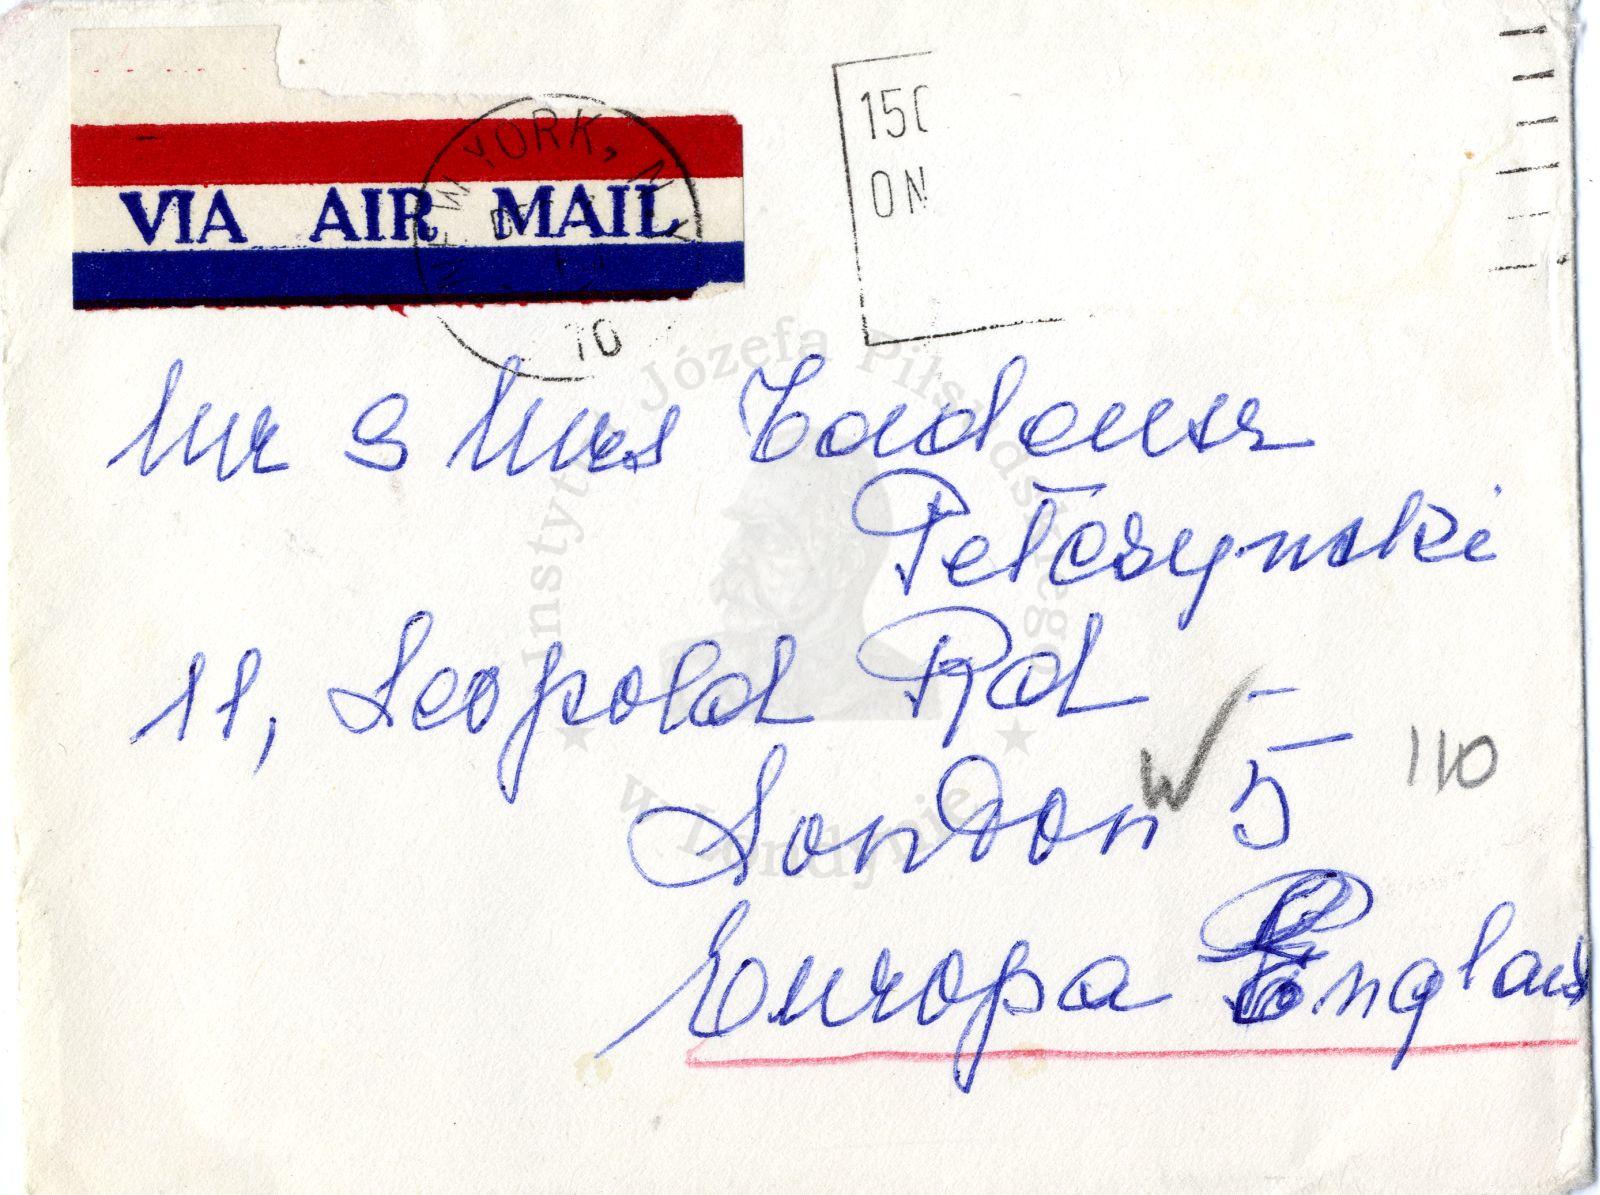 VIA AIR MAIL
NEW YORK, N.Y.
70
150
ON
Mr & Mrs Tadeusz
Pełczynski
11, Leopold Rd
London W 5
110
Europa England
Instytut Józefa Piłsudskiego
w Londynie